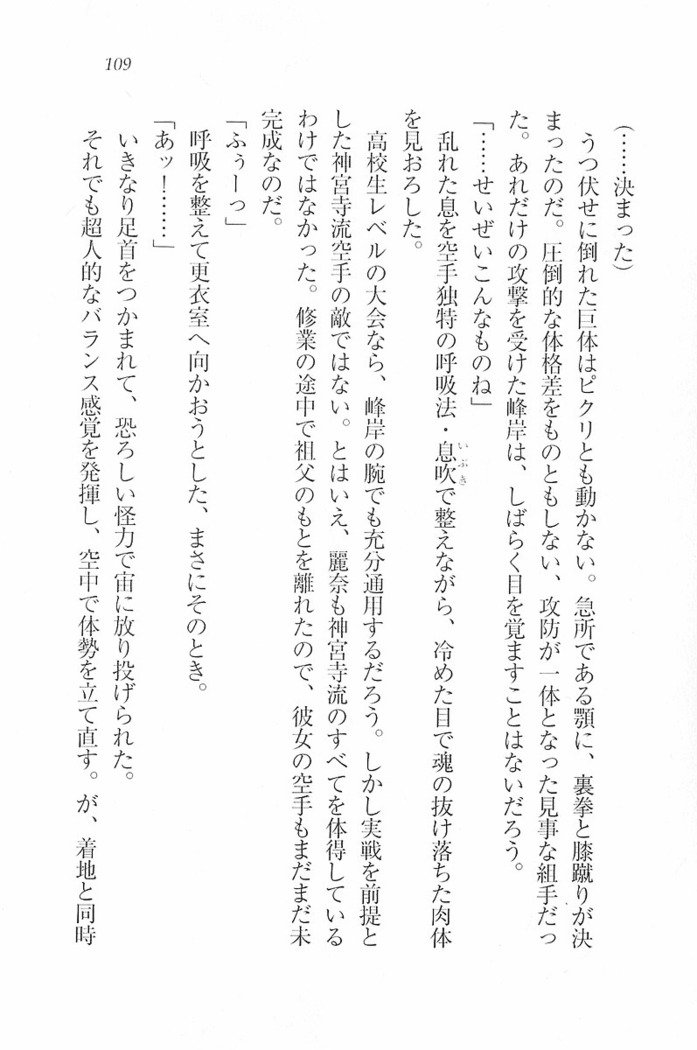 109
(……決まった)
うつ伏せに倒れた巨体はピクリとも動かない。急所である顎に、裏拳と膝蹴りが決
まったのだ。圧倒的な体格差をものともしない、攻防が一体となった見事な組手だっ
た。あれだけの攻撃を受けた峰岸は、しばらく目を覚ますことはないだろう。
「……せいぜいこんなものね」
乱れた息を空手独特の呼吸法・息吹で整えながら、冷めた目で魂の抜け落ちた肉体
いぶき
を見おろした。
高校生レベルの大会なら、峰岸の腕でも充分通用するだろう。しかし実戦を前提と
した神宮寺流空手の敵ではない。とはいえ、麗奈も神宮寺流のすべてを体得している
わけではなかった。修業の途中で祖父のもとを離れたので、彼女の空手もまだまだ未
完成なのだ。
「ふぅーっ」
呼吸を整えて更衣室へ向かおうとした、まさにそのとき。
「あッ！……」
いきなり足首をつかまれて、恐ろしい怪力で宙に放り投げられた。
それでも超人的なバランス感覚を発揮し、空中で体勢を立て直す。が、着地と同時